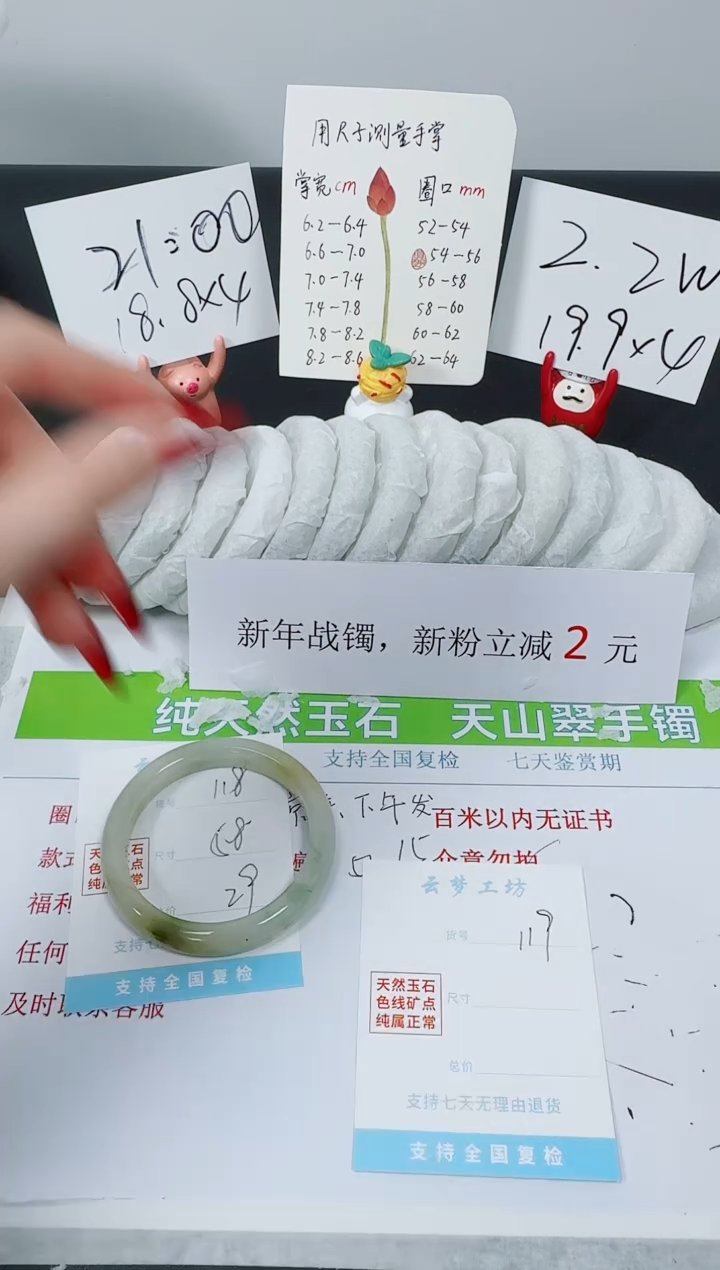 用尺子测量手掌
掌宽cm 圈口mm
6.2-6.4 52-54
6.6-7.0 54-56
7.0-7.4 56-58
7.4-7.8 58-60
7.8-8.2 60-62
8.2-8.6 62-64
21:00
18.8×4
2.2w
19.9×4
新年战镯，新粉立减2元
纯天然玉石 天山翠手镯
支持全国复检 七天鉴赏期
圈
下午发
百米以内无证书
款式
15
介意勿拍
福利
任何
及时联系客服
货号 118
尺寸 58
总价 29
支持七
支持全国复检
云梦工坊
货号 119
天然玉石
色线矿点
纯属正常
尺寸
总价
支持七天无理由退货
支持全国复检